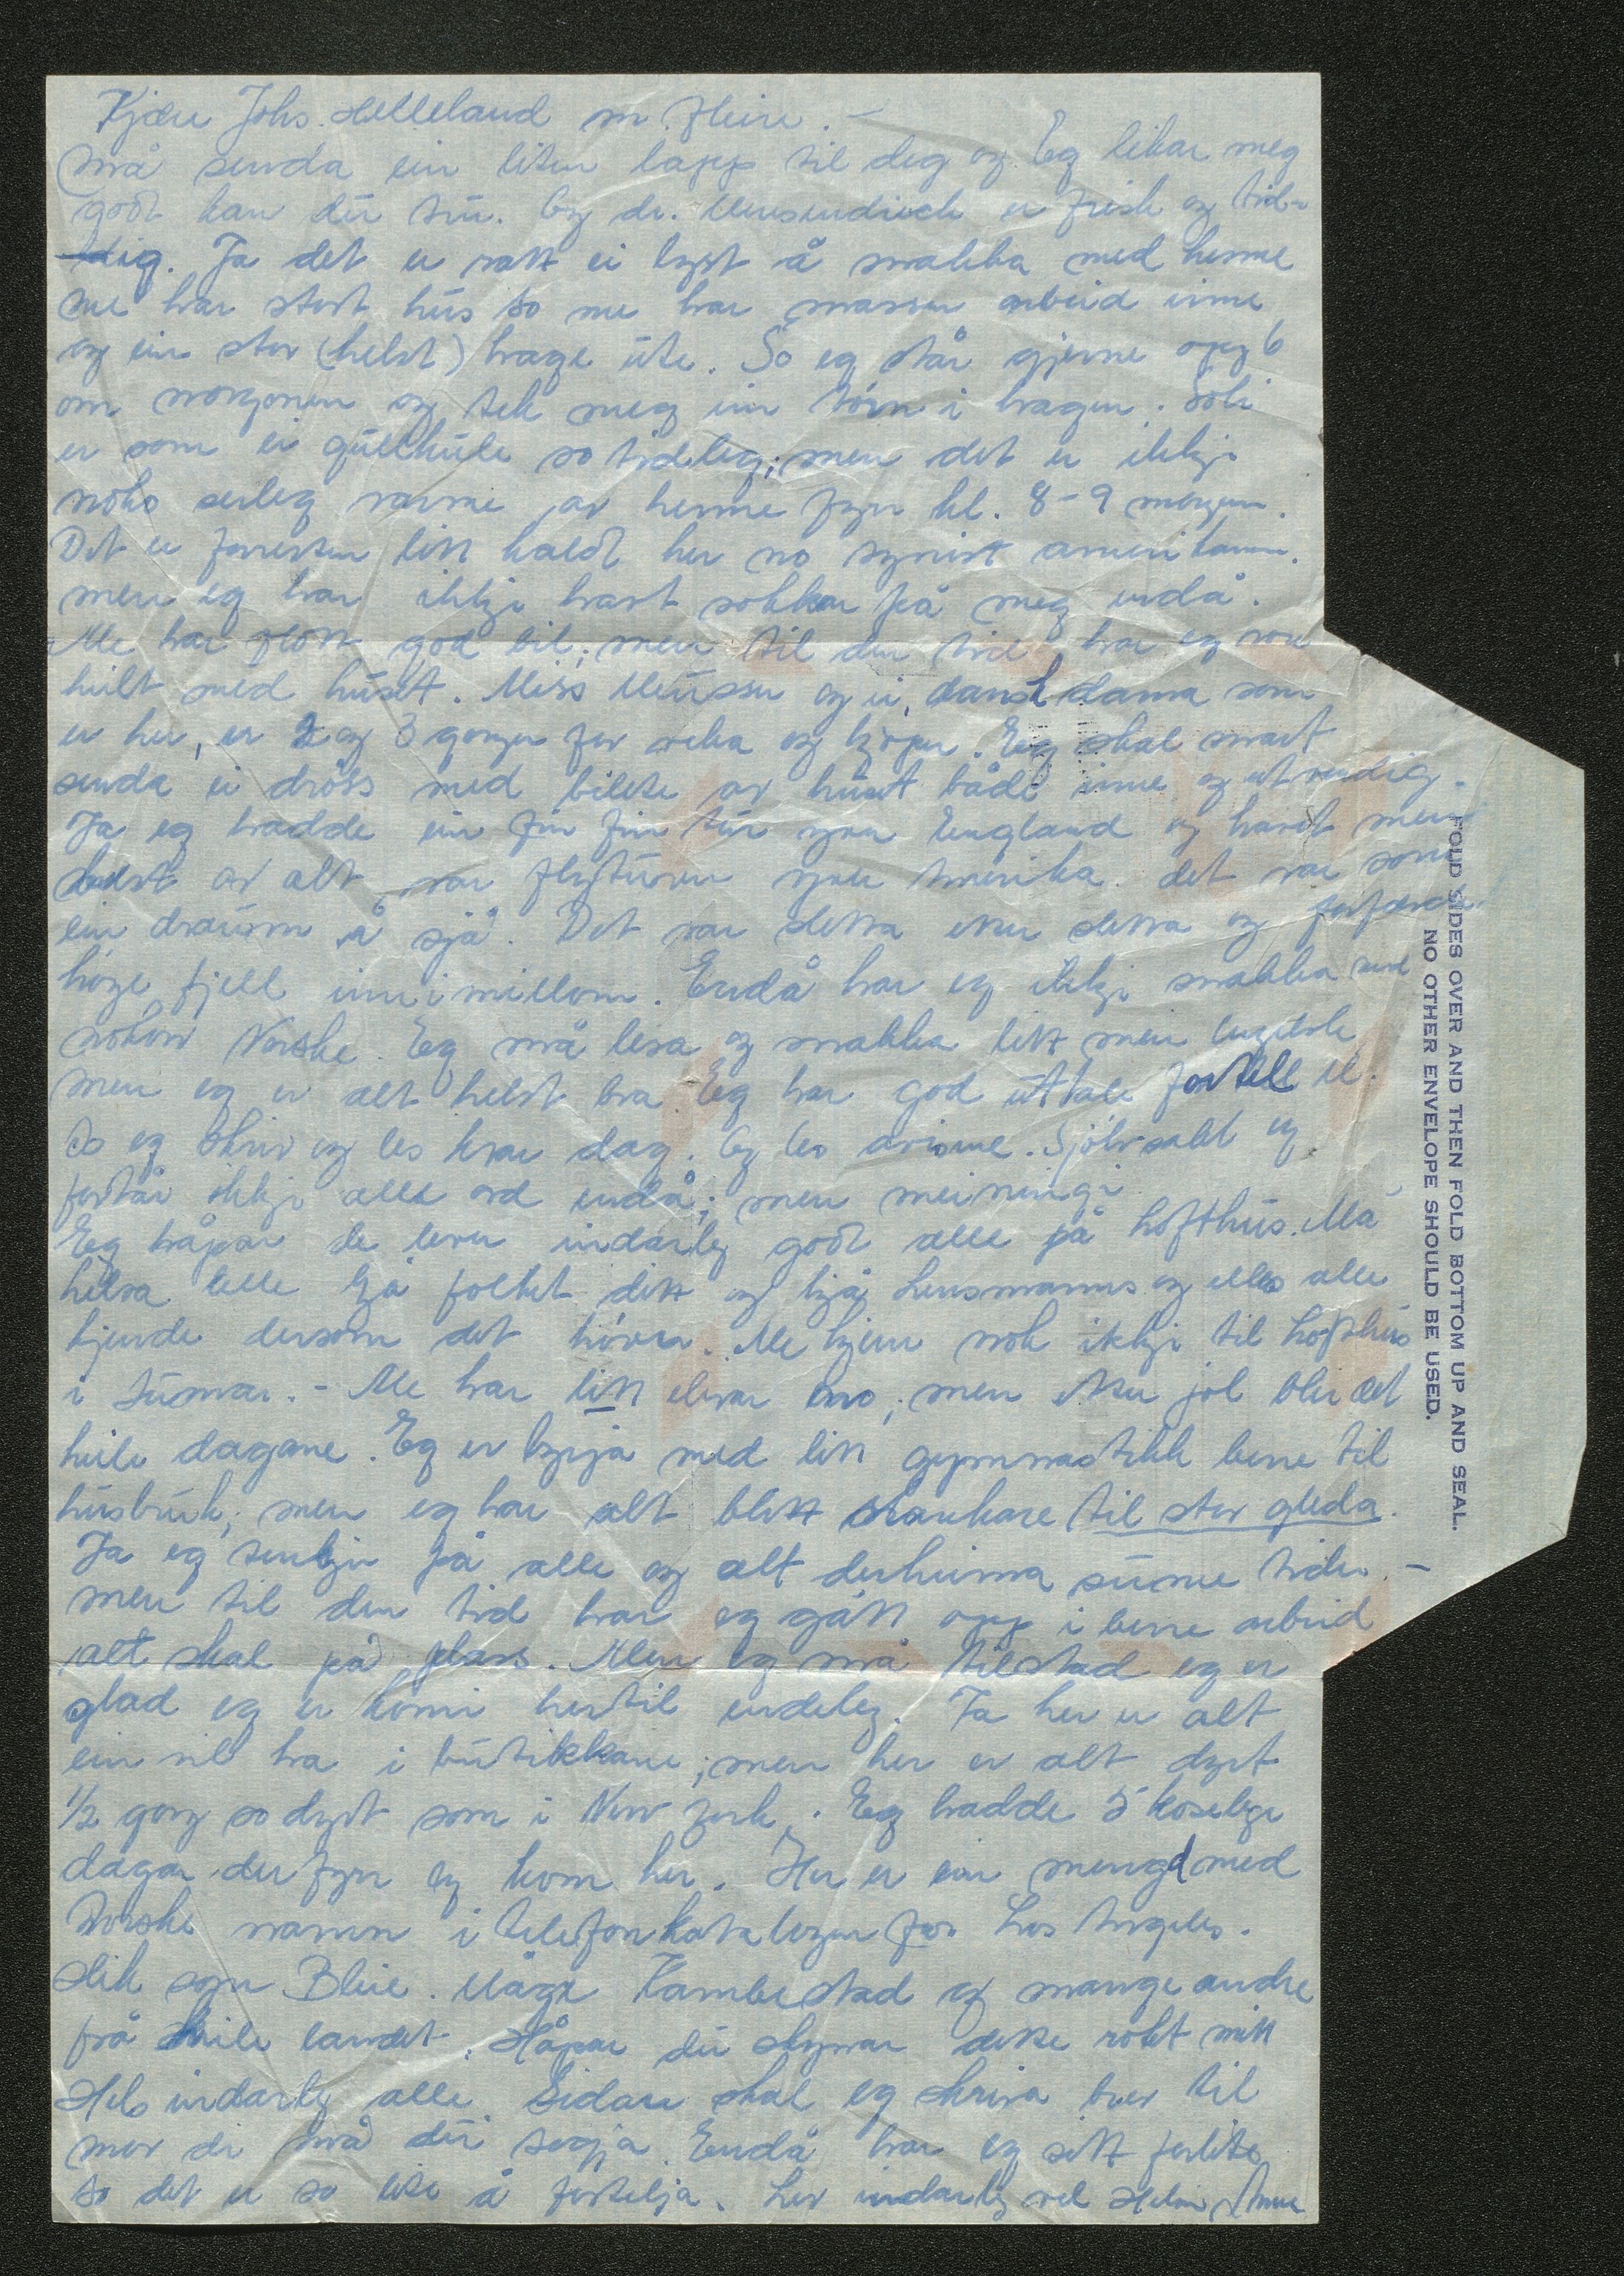 Kjære Johs. Helleland m. fleire. –
må senda ein liten lapp til deg og. Eg likar meg
godt kan du tru. Og dr. Mensendieck er frisk og
Ja det er ratt ei lyst å snakka med henne
me har stort hus so me har massor arbeid inne
og ein stor (helst) hage ute. So eg står gjerne opp 6
om morgonen og tek meg ein törn i hagen. Soli
er som ei gullkule so tideleg; men det er ikkje
noko serleg varme av henne fyrr kl. 8-9 morgen.
Det er forresten litt kaldt her no synist amerikanan.
men eg har ikkje havt sokkar på meg endå.
Me har flott god bil; men til den tid har eg vore
heilt med huset. Miss Meussen og ei dansk dama som
er her, er 2 og 3 gonger for veka og kjöper. Eg skal snart
senda ei dross med bilete av huset både inne og utvendig.
Ja eg hadde ein fin fin tur yver England og havet men
best av alt var flyturen yver Amerika. det var som
ein draum å sjå. Det var sletta etter sletta og
höge fjell inn i millom. Endå har eg ikkje snakka med
nokon Norske. Eg må lesa og snakka litt meir engelsk
men eg er alt helst bra. Eg har god uttale fortell
so eg skriv og les kvar dag. Og les avisone. Sjölvsakt eg
forstår ikkje alle ord endå; men meiningi
Eg håpar de lever inderleg godt alle på Lofthus. Må
helsa alle hjå folket ditt og hjå Lensmanns og elles alle
kjende dersom det hövra. Me kjem nok ikkje til Lofthus
i sumar. – Me har litt elevar no; men etter jol blir det
heile dagane. Eg er byrja med litt gymnastikk berre til
husbruk; men eg har alt blitt slankare til stor gleda.
Ja eg tenkjer på alle og alt derheima sume tider. –
men til den tid har eg gått opp i berre arbeid
alt skal på plass. Men eg må tilstad eg er
glad eg er komi hertil endeleg. Ja her er alt
ein vil ha i butikkane; men her er alt dyrt
1/2 gong so dyrt som i New York. Eg hadde 5 koselege
dagar der fyrr eg kom her. Her er ein mengd med
Norske namn i telefonkatalogen for Los Angeles.
slik syn Bleie. Måge Kambestad og mange andre
frå heile landet. Håpar du skynar dette rotet mitt
Hels inderleg alle. Sidan skal eg skriva brev til
mor di må du segja. Endå har eg sett forlite
so det er so lite å fortelja. Lev inderleg vel Helsing Anna
FOLD SIDES OVER AND THEN FOLD BOTTOM UP AND SEAL.
NO OTHER ENVELOPE SHOULD BE USED.